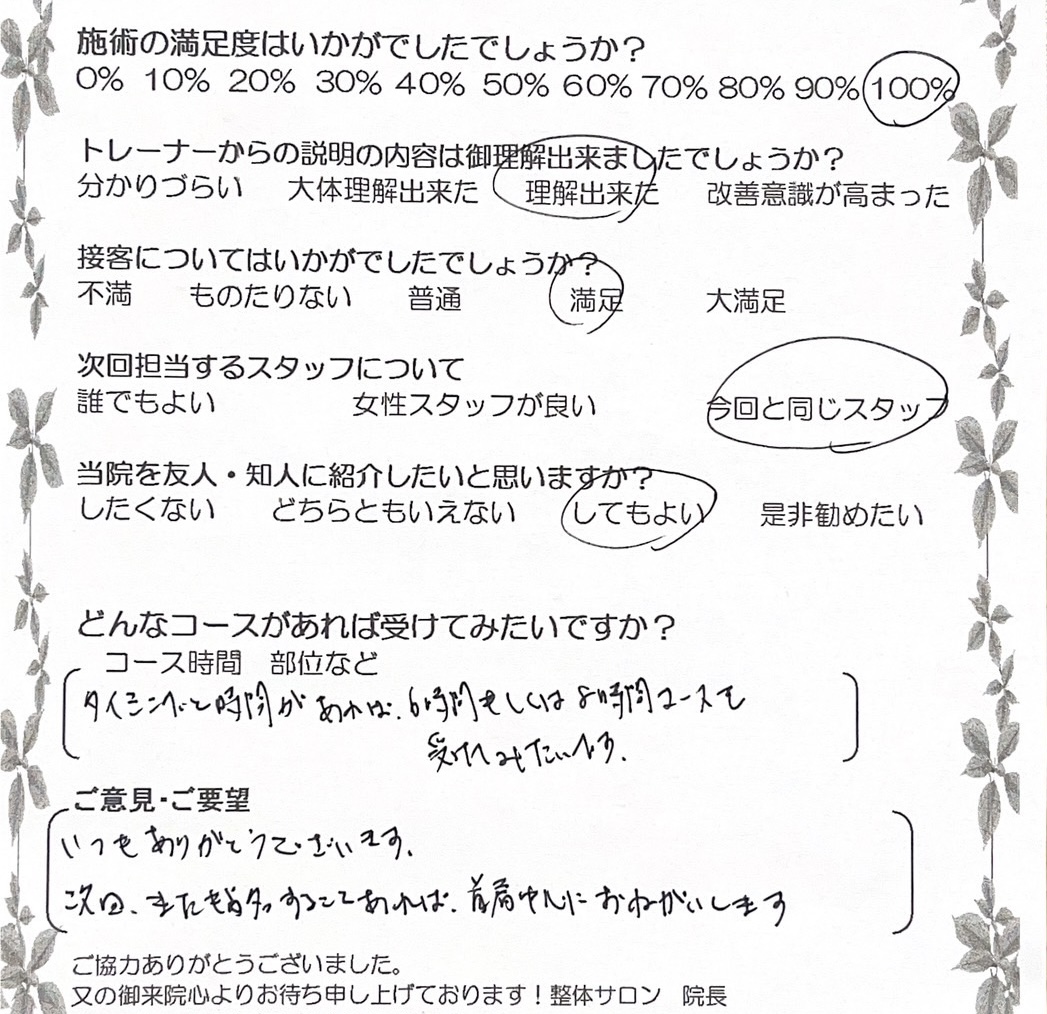 施術の満足度はいかがでしたでしょうか?
0% 10% 20% 30% 40% 50% 60% 70% 80% 90% 100%
トレーナーからの説明の内容は御理解出来ましたでしょうか?
分かりづらい 大体理解出来た 理解出来た 改善意識が高まった
接客についてはいかがでしたでしょうか?
不満 ものたりない 普通 満足 大満足
次回担当するスタッフについて
誰でもよい 女性スタッフが良い 今回と同じスタッフ
当院を友人・知人に紹介したいと思いますか?
したくない どちらともいえない してもよい 是非勧めたい
どんなコースがあれば受けてみたいですか?
コース時間 部位など
タイミングと時間があれば、6時間もしくは8時間コースを
受けてみたいです。
ご意見・ご要望
いつもありがとうございます。
次回、またすることあれば、首肩中心におねがいします
ご協力ありがとうございました。
又の御来院心よりお待ち申し上げております!整体サロン 院長